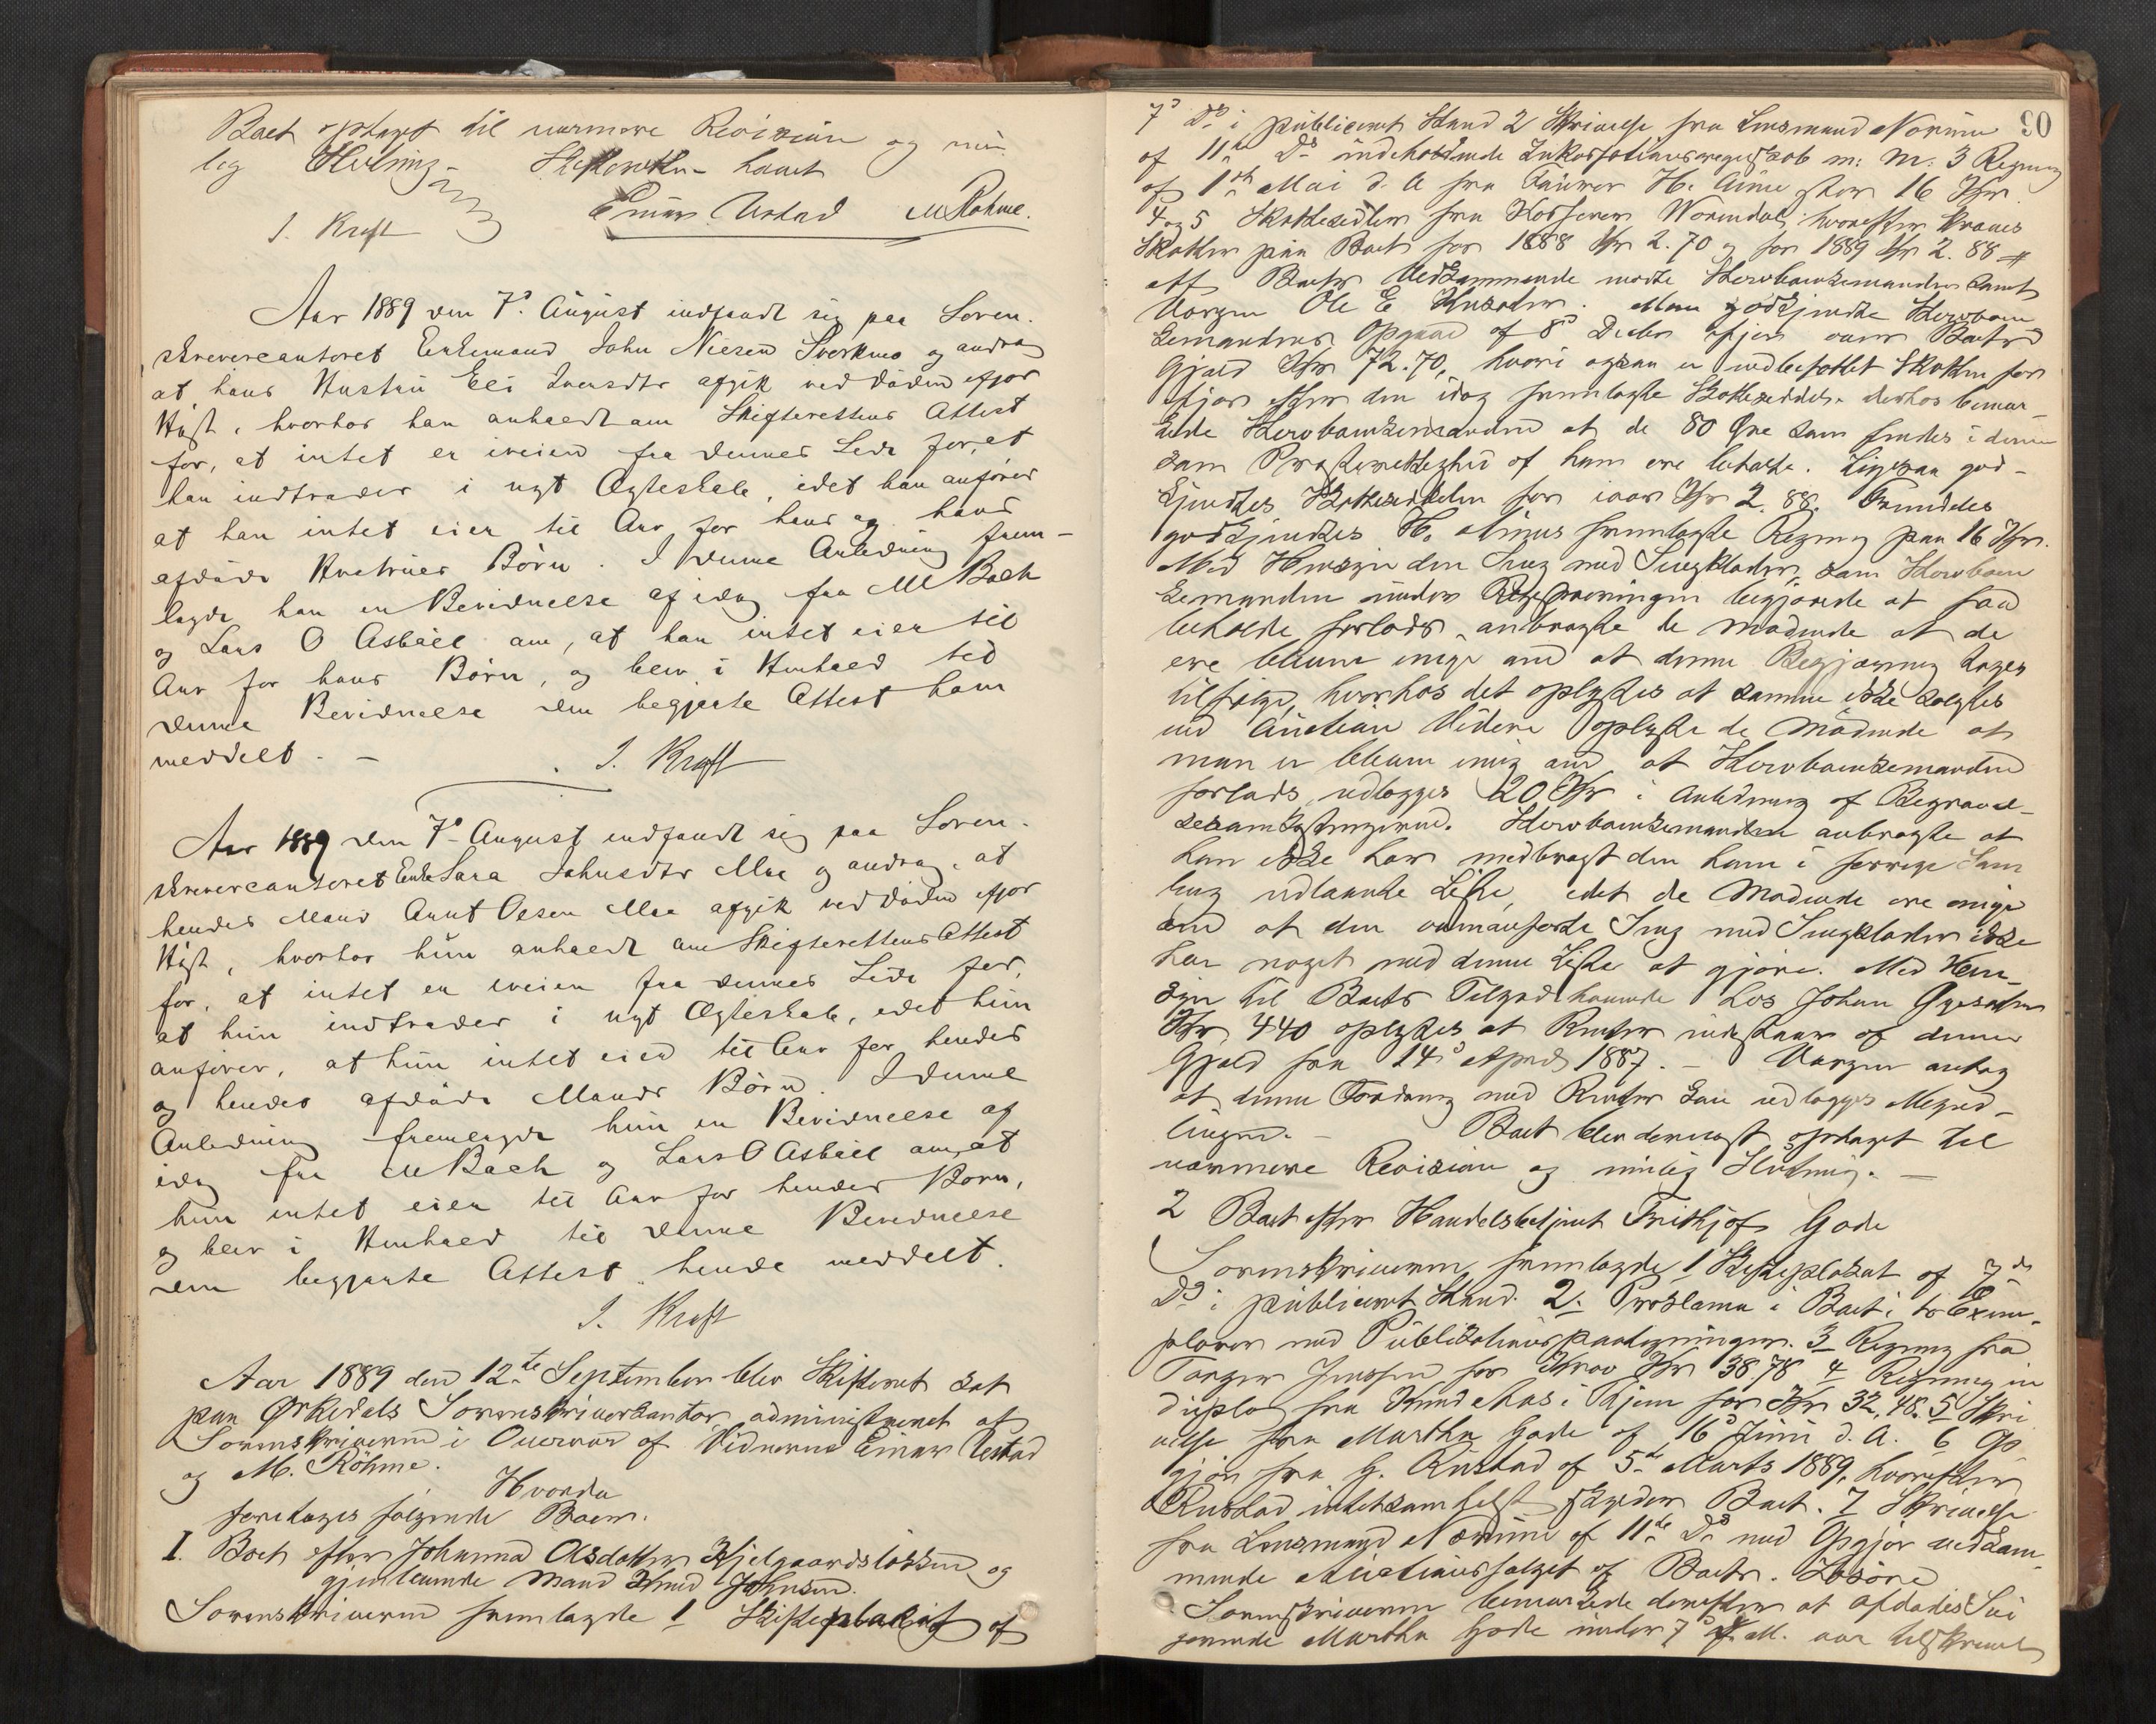 Boet optaget til nærmere Revision og min-
lig Slutning – Skifteretten hævet
J. Kraft Einar Ustad M Røhme.
Aar 1889 den 7de August indfandt sig paa Soren-
skrivercantoret Enkemand John Niesen Sverkmo og androg
at hans Hustru Eli Iversdtr afgik ved døden ifjor
Høst, hvorhos han anholdt om Skifterettens Attest
for, at intet er iveien fra dennes Side for, at
han indtræder i nyt Ægteskab, idet han anfører
at han intet eier til Arv for hans og hans
afdøde Hustrues Børn. I denne Anledning frem-
lagde han en Bevidnelse af idag fra M Bach
og Lars O Asbøll om, at han intet eier til
Arv for hans Børn, og blev i Henhold til
denne Bevidnelse den begjærte Attest ham
meddelt. –
J. Kraft
Aar 1889 den 7de August indfandt sig paa Soren-
skrivercantoret Enke Sara Johnsdtr Moe og androg, at
hendes Mand Arnt Olsen Moe afgik ved døden ifjor
Høst, hvorhos hun anholdt om Skifterettens Attest
for, at intet er iveien fra dennes Side for,
at hun indtræder i nyt Ægteskab, idet hun
anfører, at hun intet eier til Arv for hendes
og hendes afdøde Mands Børn. I denne
Anledning fremlagde hun en Bevidnelse af
idag fra M Bach og Lars O Asbøll om, at
hun intet eier til Arv for hendes Børn,
og blev i Henhold til denne Bevidnelse
den begjærte Attest hende meddelt.
J. Kraft
Aar 1889 den 12te September blev Skifteret sat
paa Ørkedals Sorenskriverkontor administreret af
Sorenskriveren i Overvær af Vidnerne Einar Ustad
og M. Röhme.
Hvorda
foretoges følgende Boer.
I. Boet efter Johanna Olsdatter Kjelgaardsløkken og
gjenlevende Mand Knud Johnsen.
Sorenskriveren fremlagde 1 Skifteplakat af
90
7de Ds i publiceret Stand 2 Skrivelse fra Lensmand Norum
af 11te Ds indeholdende Inkassationsregnskab m: M: 3 Regning
af 1ste Mai d. A fra H. Aune stor 16 Kr.
4 og 5 Skattesedler fra Kasserer Wormdal, hvorefter kræves
Skatten paa Boet for 1888 Kr 2.70 og for 1889 Kr 2.88
Af Boets Vedkommende mødte Steroboenkemanden samt
Værgen Ole E Knudsen. Man godkjendte Sterboen
kemandens Opgave af 8de Decbr ifjor over Boets
Gjæld Kr 72.70, hvori ogsaa er indbefattet Skatten for
ifjor efter den idag fremlagte Skatteseddel. derhos bemær-
kede Sterboenkemanden at de 80 Øre som findes i denne
som Præsterettighed af ham ere betalte. Ligesaa god-
kjendtes Skatteseddelen for iaar Kr 2.88. Fremdeles
godkjendtes H. Aunes fremlagte Regning paa 16 Kr.
Med Hensyn den Seng med Sengklæder, som Sterboen
kemanden under begjærede at faa
beholde forlods, anbragte de mødende at de
ere blevne enige om at denne Begjæring tages
tilfølge, hvorhos det oplystes at samme ikke solgtes
ved Auction Videre oplyste de Mødende at
man er bleven enig om, at Sterboenkemanden
forlods udlægges 20 Kr i Anledning af Begravel-
sesomkostningerne. Sterboenkemanden anbragte at
han ikke har medbragt den ham i forrige Sam
ling udlaante Liste, idet de Mødende ere enige
om at den omanførte Seng med Sengklæder ikke
har noget med denne Liste at gjøre. Med Hen-
syn til Boets Tilgodehavende hos Johan
Kr 440 oplystes at Renter indestaar af denne
Gjæld fra 14de April 1887. – Værgen antog
at denne Fordring med Renter kan udlægges Mynd-
lingen. – Boet blev dernæst optaget til
nærmere Revision og minlig Slutning. –
2 Boet efter Handelsbetjent Frithjof Gode
Sorenskriveren fremlagde 1 Skifteplakat af 7de
Ds i publiceret Stand. 2. Proklama i Boet i to Exem-
plarer med Publikationspaategninger. 3 Regning fra
Torger Jenssen for Krav Kr 38.78 4 Regning in
duplo fra Knud Aas i for Kr 32,48. 5 Skri
velse fra Martha Gode af 16de Juni d. A. 6 Op
gjør fra G. Rustad af 5te Marts 1889, hvorefter
Rustad intetsomhelst skylder Boet. 7 Skrivelse
fra Lensmand Norum af 11te Ds med Opgjør vedkom-
mende Auctionssalget af Boets Løsøre
Sorenskriveren bemærkede derefter at afdødes
Martha Gode under 7de d. M. var tilskrevet